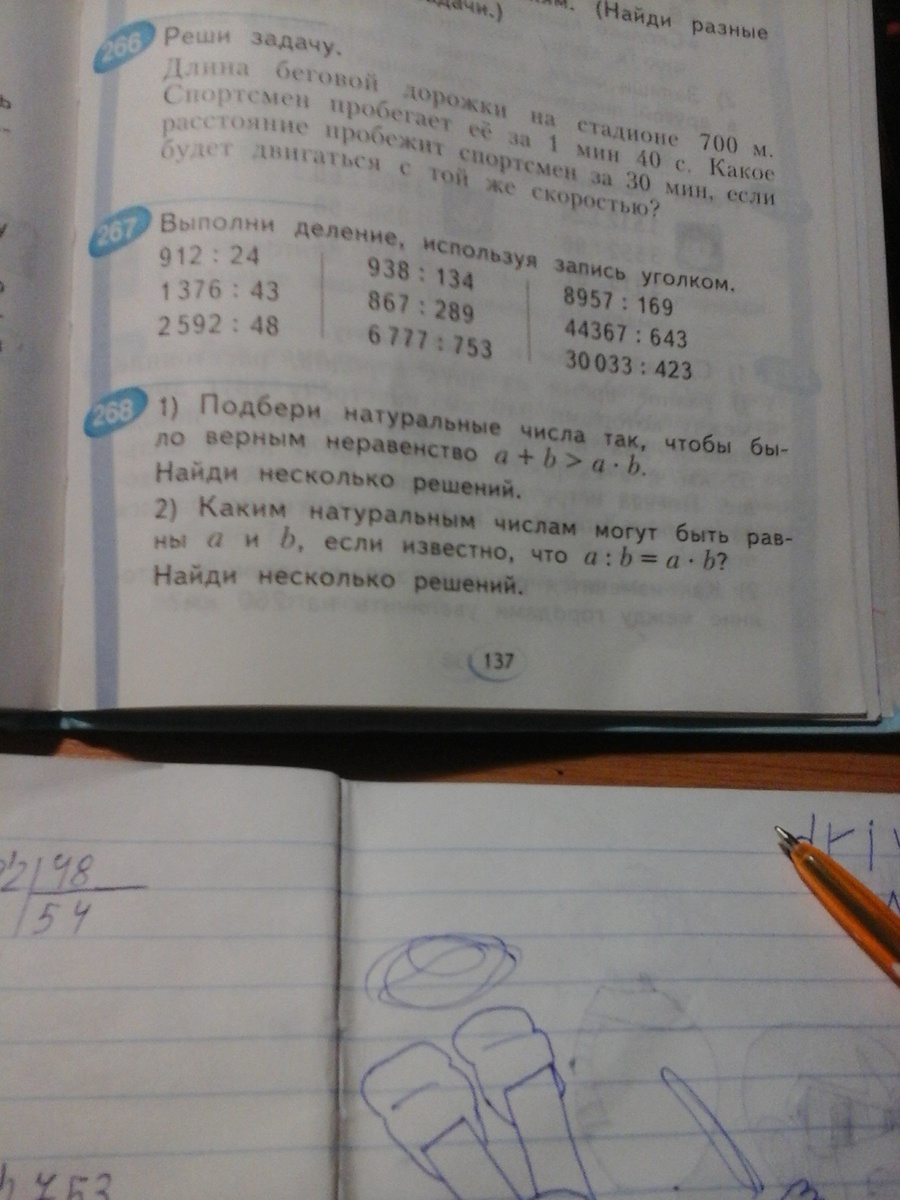 (Найди разные
266 Реши задачу.
Длина беговой дорожки на стадионе 700 м.
Спортсмен пробегает её за 1 мин 40 с. Какое
расстояние пробежит спортсмен за 30 мин, если
будет двигаться с той же скоростью?
267 Выполни деление, используя запись уголком.
912 : 24 938 : 134 8957 : 169
1 376 : 43 867 : 289 44367 : 643
2 592 : 48 6 777 : 753 30 033 : 423
268 1) Подбери натуральные числа так, чтобы бы-
ло верным неравенство a + b > a · b.
Найди несколько решений.
2) Каким натуральным числам могут быть рав-
ны a и b, если известно, что a : b = a · b?
Найди несколько решений.
137
48
54
753